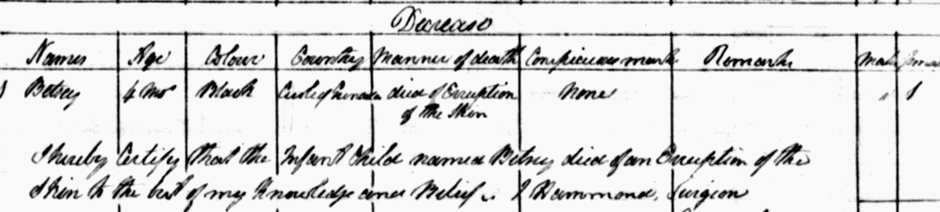 Decrease
Names Age Colour Country Manner of death Conspicuous mark Remarks Male
1 Betsey 4 Mos Black died of Erruption None " 1
of the Skin
I hereby Certify that the Infant Child named Betsey died of an Erruption of the
Skin to the best of my Knowledge and Belief. J Hammond, Surgeon